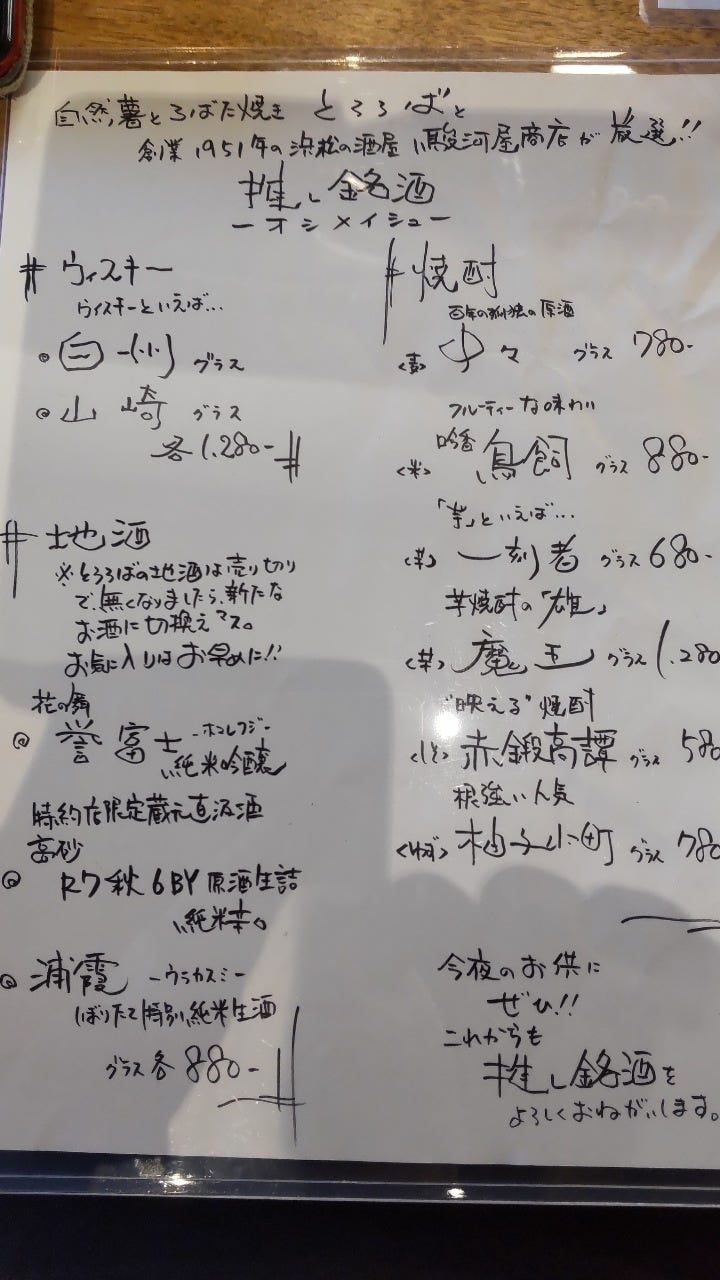 自然薯とろばた焼き とろろばと
創業1951年の浜松の酒屋 駿河屋商店が 厳選!!
推し銘酒
ーオシメイシューー
# ウィスキー
ウィスキーといえば...
白州 グラス
山崎 グラス
各1,280-
# 地酒
※とろろばの地酒は売り切り
で、無くなりましたら、新たな
お酒に切換えマス。
お気に入りはお早めに!!
花の舞
誉富士 -ホマレフジ-
純米吟醸
特約店限定蔵元直汲酒
高砂
R7秋 6BY 原酒生詰
純米辛口
浦霞 -ウラカスミ-
しぼりたて特別純米生酒
グラス各 880-
# 焼酎
百年の孤独の原酒
<麦> 中々 グラス 780-
フルーティーな味わい
<米> 吟香 鳥飼 グラス 880-
「芋」といえば...
<芋> 一刻者 グラス 680-
芋焼酎の「雄」
<芋> 魔王 グラス 1,280
"映える"焼酎
<しそ> 赤鍛高譚 グラス 580
根強い人気
<ゆず> 柚子小町 グラス 780
今夜のお供に
ぜひ!!
これからも
推し銘酒を
よろしくおねがいします。